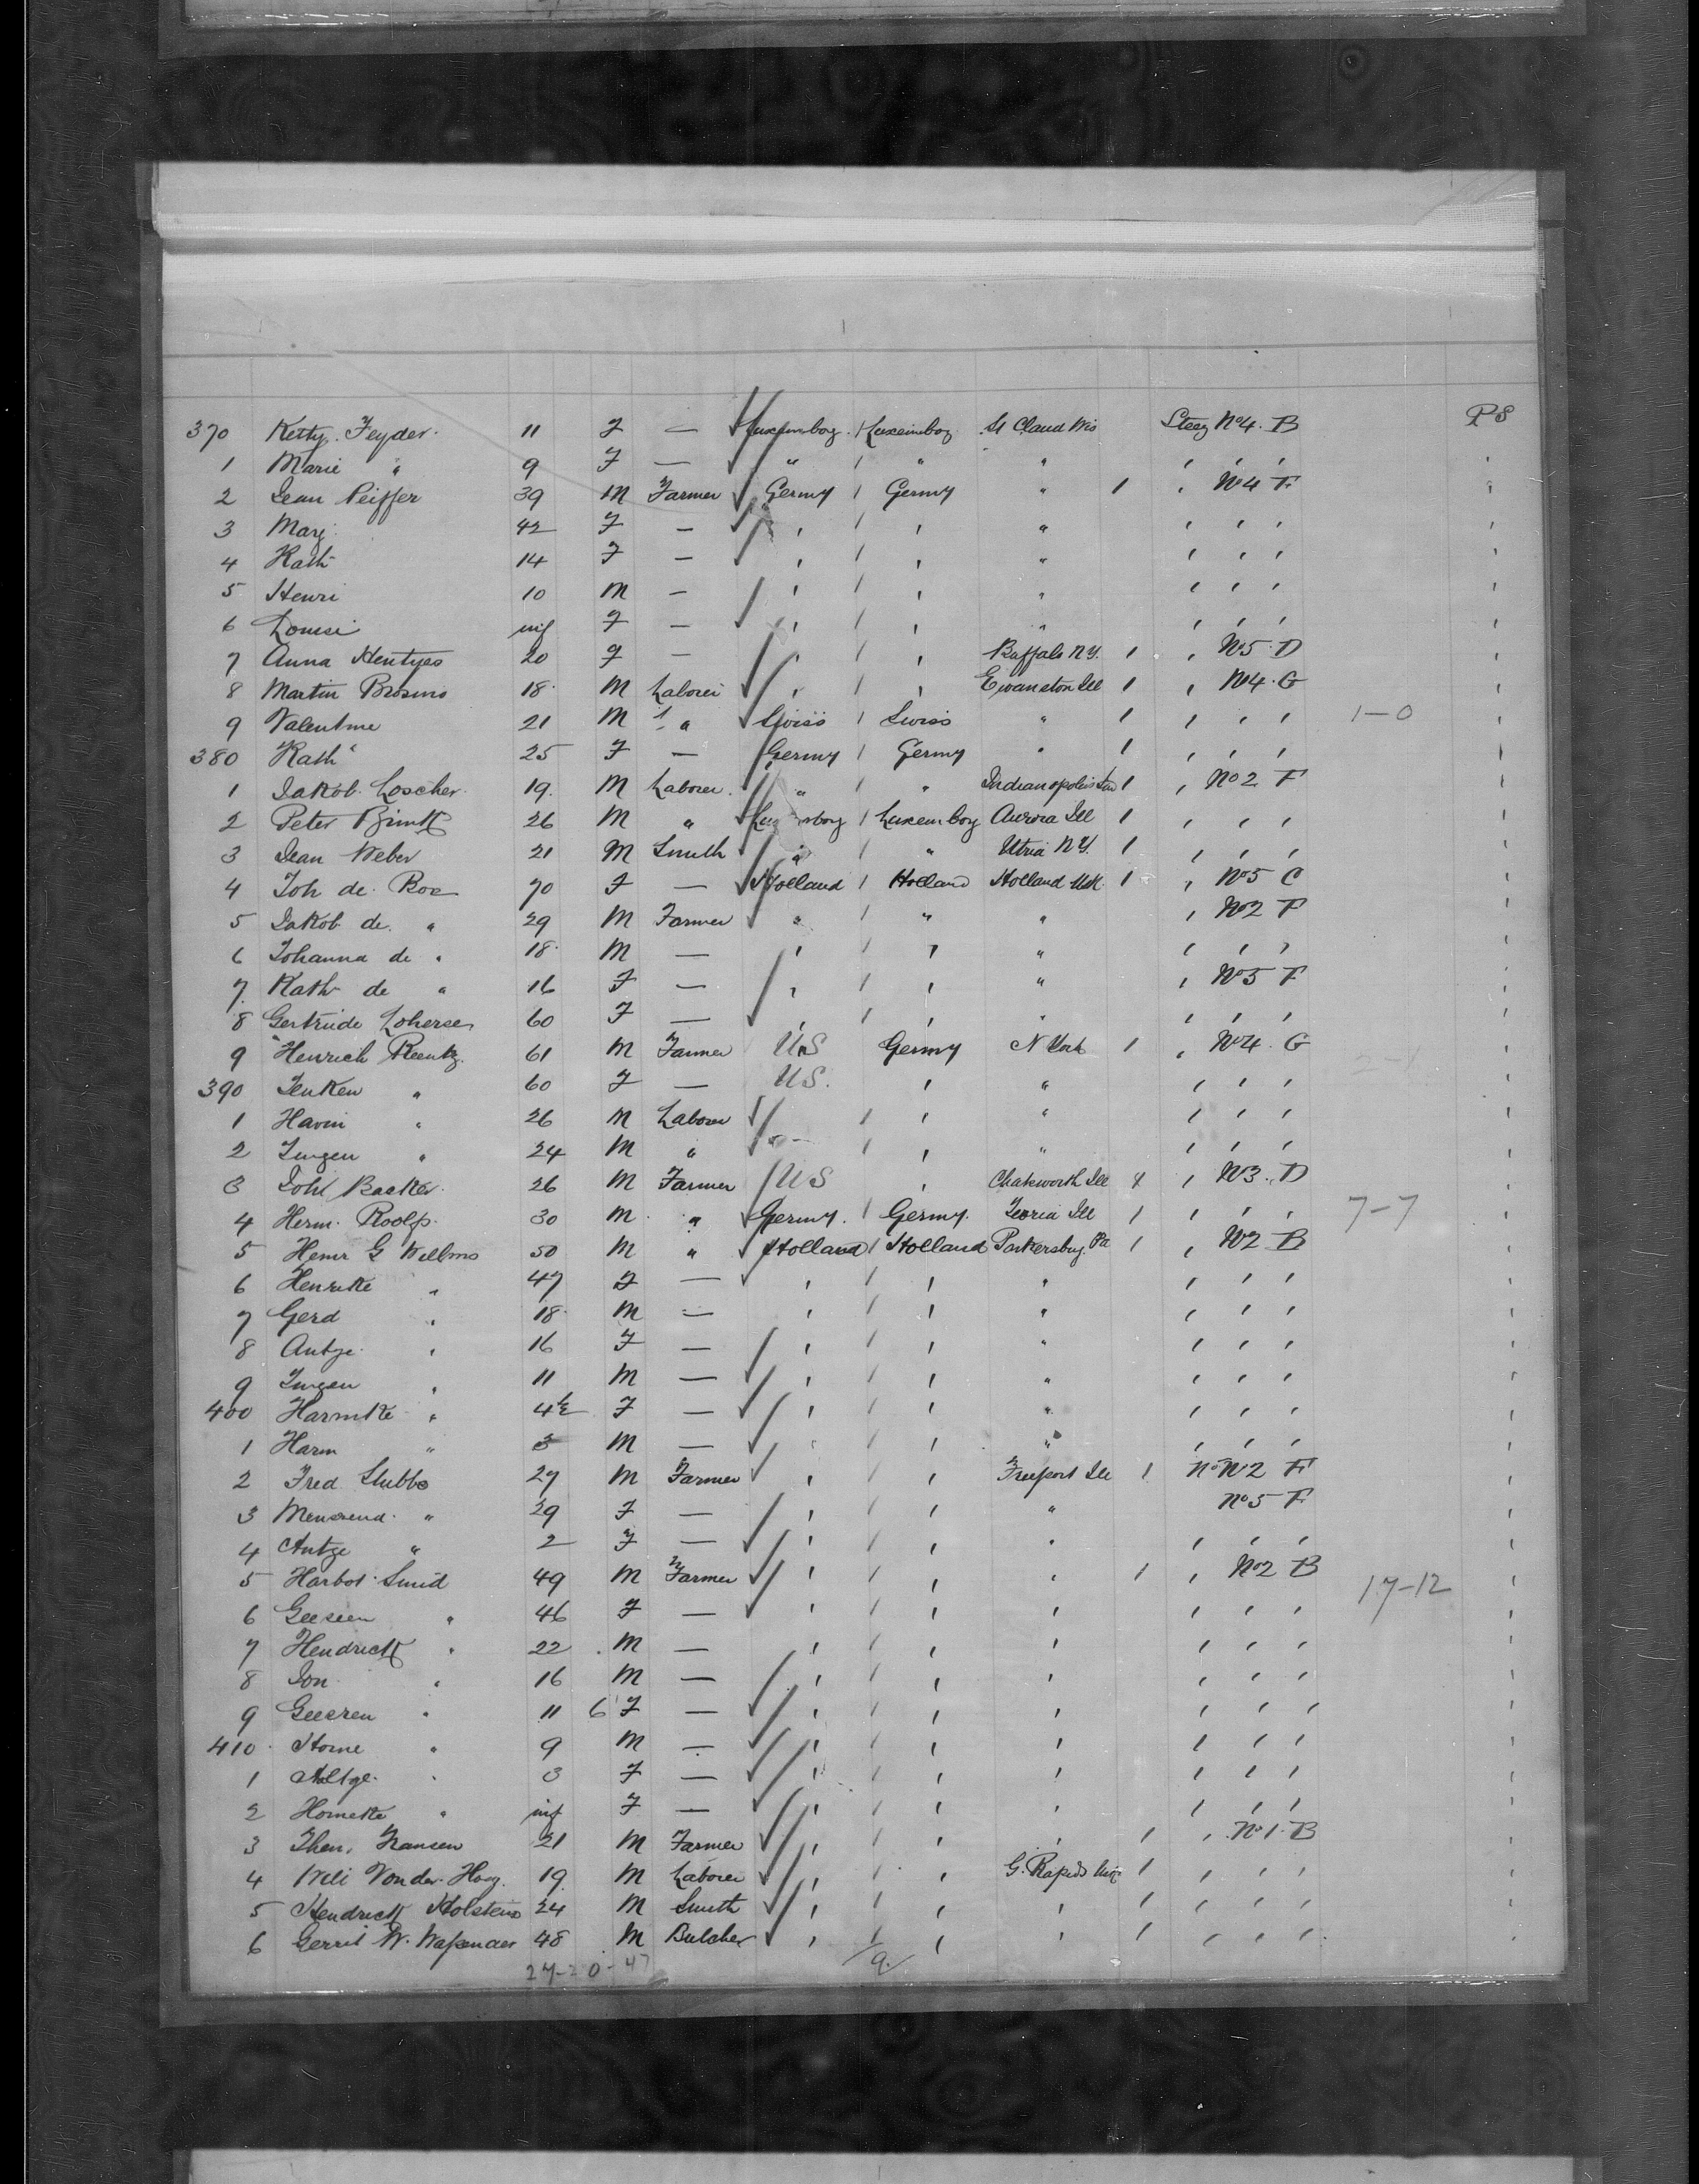 P S
370 Ketty Feyder 11 F — Luxembog Luxembog St Claud Wis Steeg No 4. B
1 Marie " 9 F — " " "
2 Jean Peiffer 39 M Farmer Germy Germy " 1 No 4 F
3 Mary 42 F — " " "
4 Kath 14 F — " " "
5 Henri 10 M — " " "
6 Louisi inf F — " " "
7 Anna Hentges 20 F — " " Buffalo N.Y. 1 No 5 D
8 Martin 18 M Laborer " " Ewanston Ill 1 No 4 G
9 Valentine 21 M " Swiss Swiss " 1 1—0
380 Kath " 25 F — Germy Germy " 1
1 Jakob Loscher 19 M Laborer " " Indianopolis 1 No 2 F
2 Peter 26 M " Luxembog Luxembog Aurora Ill 1
3 Jean Weber 21 M Smith " " Utria N.Y. 1
4 Joh de Boe 70 F — Holland Holland Holland 1 No 5 C
5 Jakob de " 29 M Farmer " " " No 2 F
6 Johanna de " 18 M — " " "
7 Kath de " 16 F — " " " No 5 F
8 Gertrude 60 F — " " "
9 Henrich Reentz 61 M Farmer U.S Germy N York 1 No 4. G
390 Jenken " 60 F — U.S. " "
1 Harm " 26 M Laborer " "
2 " 24 M " " "
3 Joh Backer 26 M Farmer U S " Chatsworth Ill No 3. D
4 Herm. Roolfs 30 M " Germy. Germy. Peoria Ill 1 7—7
5 Henr G Wellms 50 M " Holland Holland Parkersbug. Pa 1 No 2 B
6 Henrike " 47 F — " " "
7 Gerd " 18 M — " " "
8 Antge " 16 F — " " "
9 " 11 M — " " "
400 Harmke " 4½ F — " " "
1 Harm " 3 M — " " "
2 Fred Stubbe 27 M Farmer " " Freeport Ill 1 No 2 F
3 " 29 F — " " " No 5 F
4 Antge " 2 F — " " "
5 Harbot Smid 49 M Farmer " " " 1 No 2 B 17—12
6 Geesien " 46 F — " " "
7 Hendrick " 22 M — " " "
8 Jon " 16 M — " " "
9 " 11 6 F — " " "
410 " 9 M — " " "
1 Aaltge " 3 F — " " "
2 " inf F — " " "
3 Hansen 21 M Farmer " " " 1 No 1. B
4 Von der 19 M Laborer " " G. Rapids 1
5 Hendrick Holstein 24 M Smith " " " 1
6 Gerrit W. Wapenaer 48 M Butcher " " " 1
27-20-47